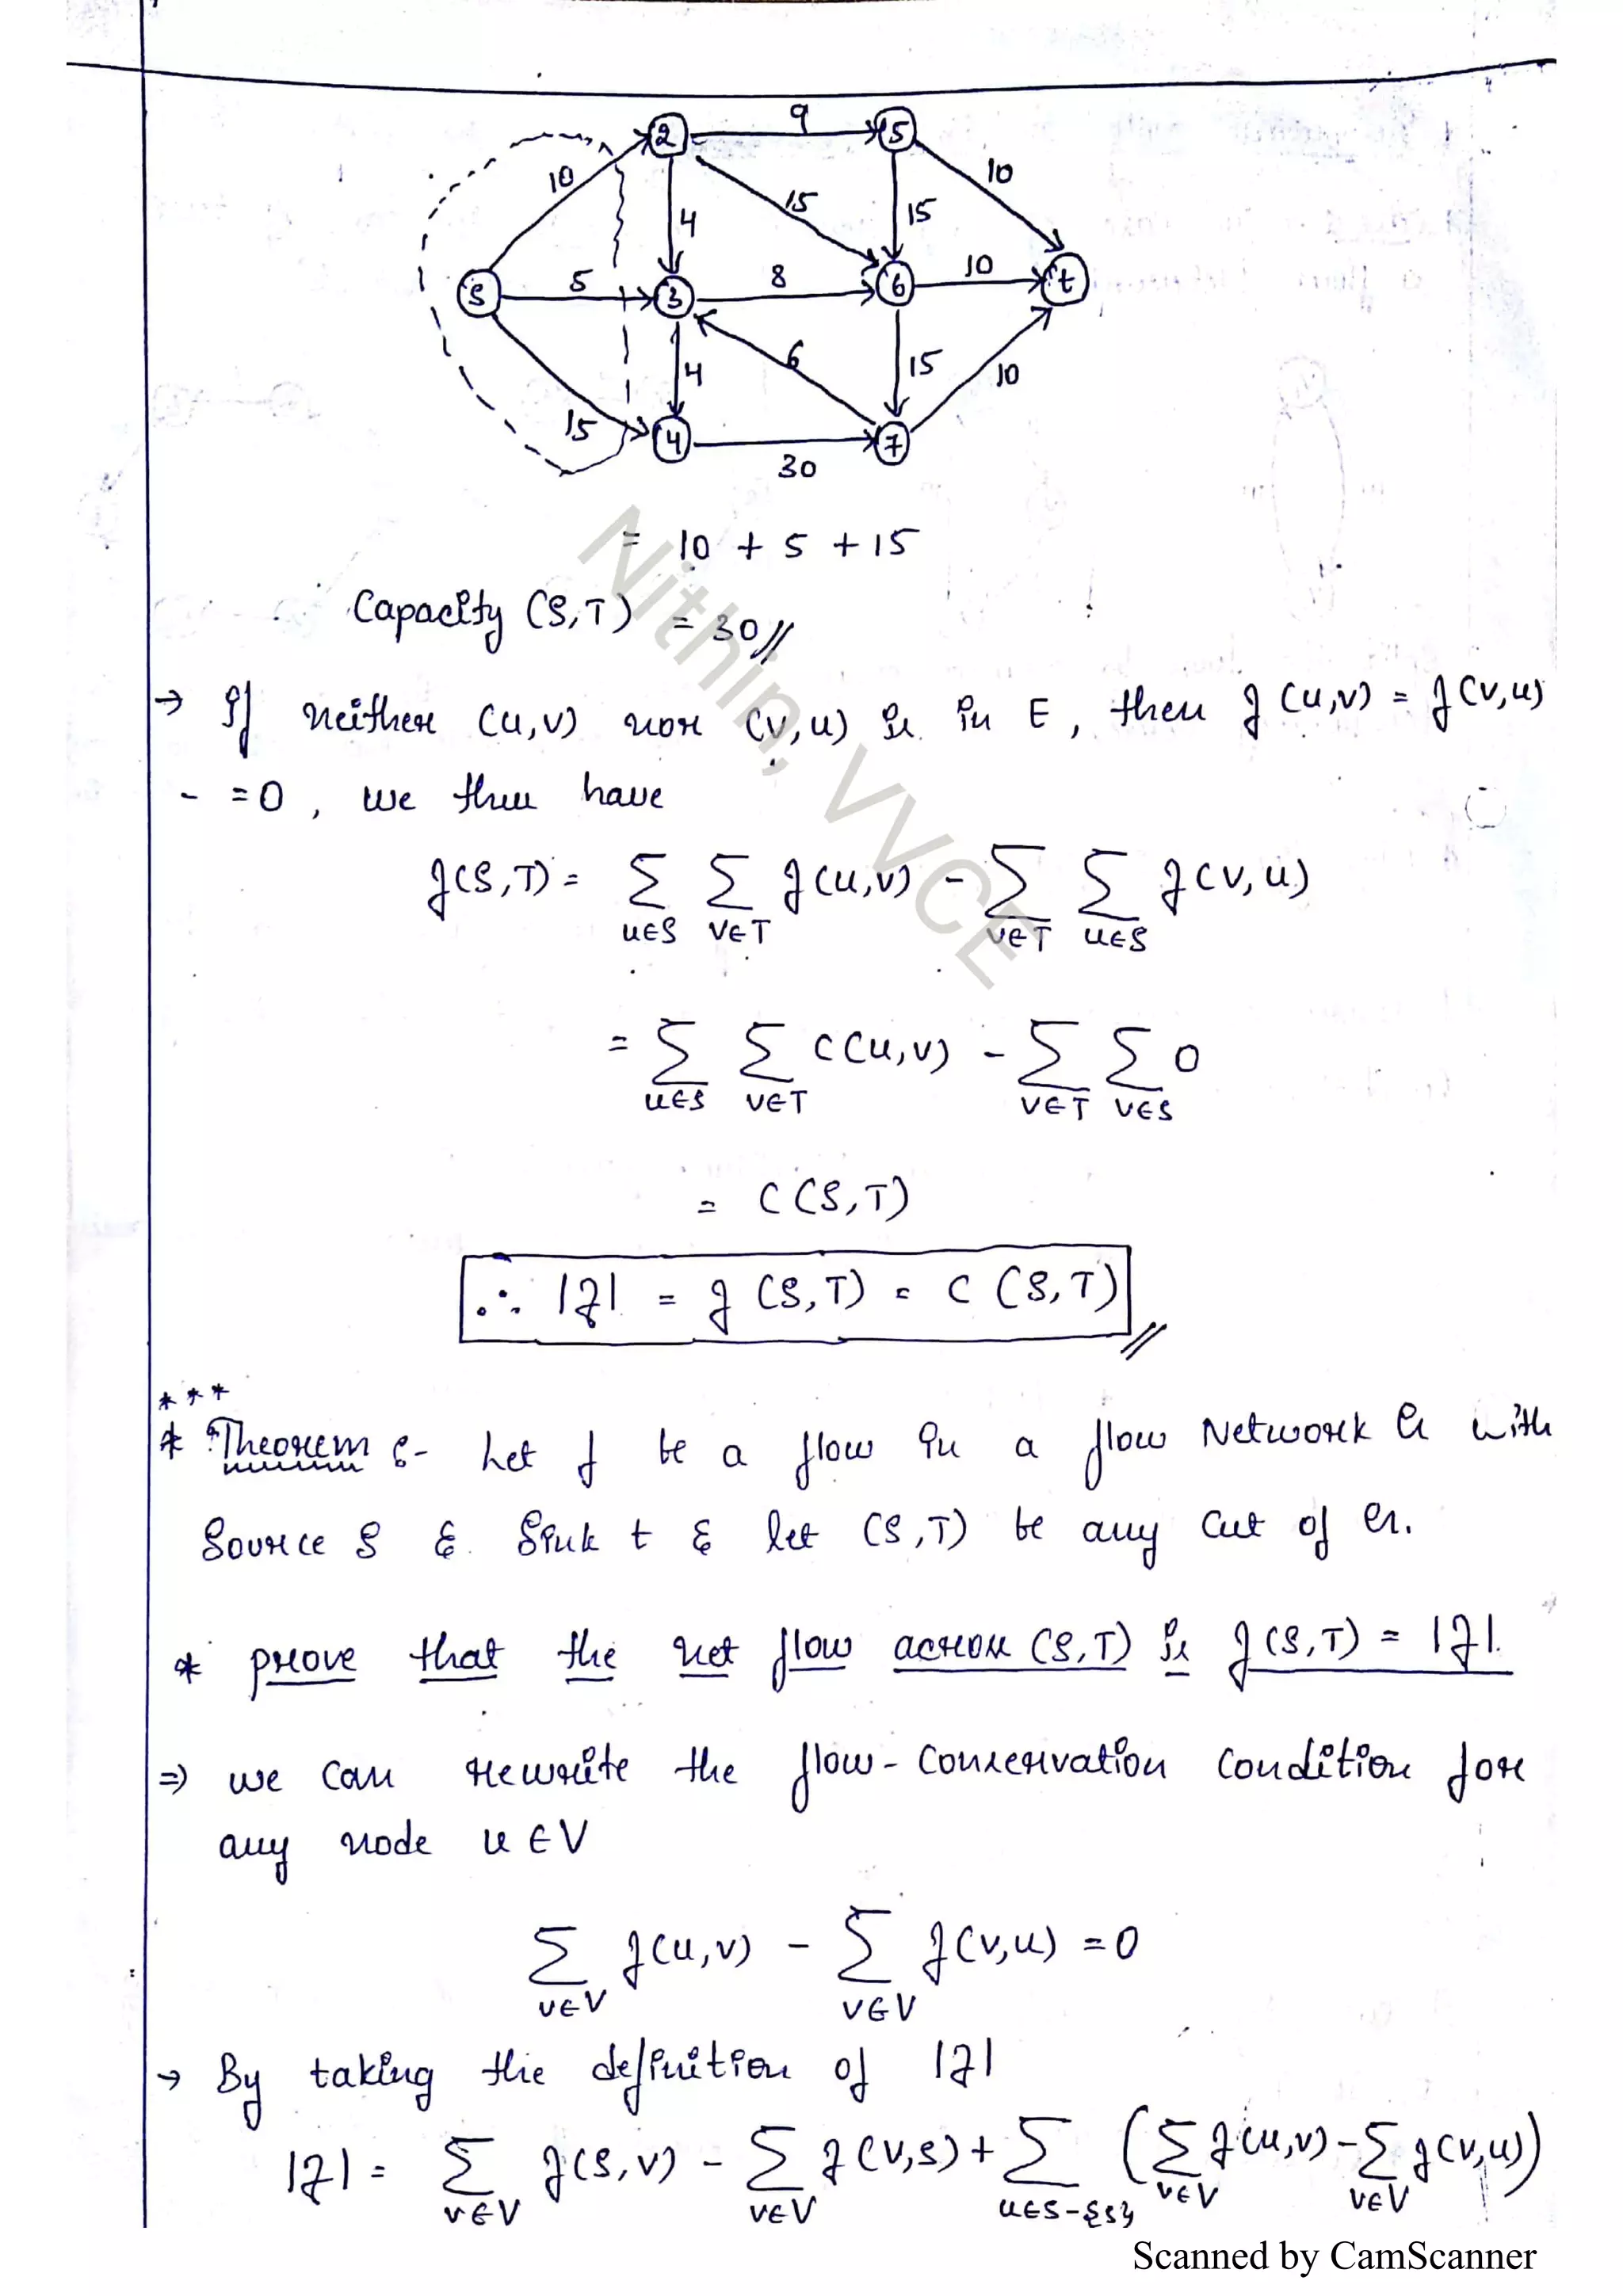 2 9 5
10 4 15 15 10
s 5 3 8 6 10 t
15 4 6 15 10
4 30 7
= 10 + 5 + 15
Capacity (S,T) = 30 //
→ If neither (u,v) nor (v,u) is in E, then f(u,v) = f(v,u)
- =0, we thus have
f(S,T) = ∑ ∑ f(u,v) - ∑ ∑ f(v,u)
u∈S v∈T v∈T u∈S
= ∑ ∑ C(u,v) - ∑ ∑ 0
u∈S v∈T v∈T v∈S
= C(S,T)
∴ |f| = f(S,T) = C(S,T) //
* * *
* Theorem :- Let f be a flow in a flow Network G with
Source S & Sink t & let (S,T) be any cut of G.
* prove that the net flow across (S,T) is f(S,T) = |f|.
⇒ we can rewrite the flow-conservation condition for
any node u ∈ V
∑ f(u,v) - ∑ f(v,u) = 0
v∈V v∈V
→ By taking the definition of |f|
|f| = ∑ f(s,v) - ∑ f(v,s) + ∑ (∑ f(u,v) - ∑ f(v,u))
v∈V v∈V u∈S-{s} v∈V v∈V
Nithin, VVCE
Scanned by CamScanner